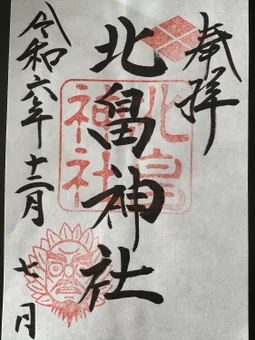 奉拝
北畠神社
北畠神社
令和六年十二月七日